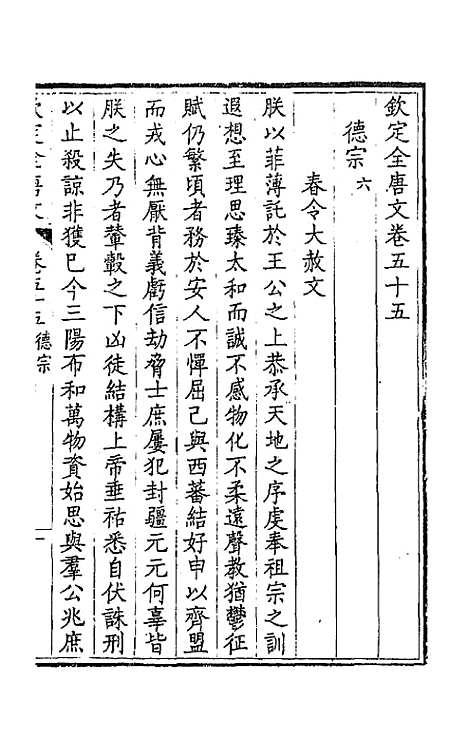 欽定全唐文卷五十五
德宗六
春令大赦文
朕以菲薄託於王公之上恭承天地之序虔奉祖宗之訓
遐想至理思臻太和而誠不感物化不柔遠聲教猶鬱征
賦仍繁頃者務於安人不憚屈己與西蕃結好申以齊盟
而戎心無厭背義虧信劫脅士庶屢犯封疆元元何辜皆
朕之失乃者輦轂之下凶徒結構上帝垂祐悉自伏誅刑
以止殺諒非獲已今三陽布和萬物資始思與羣公兆庶
欽定全唐文 卷五十五德宗 一